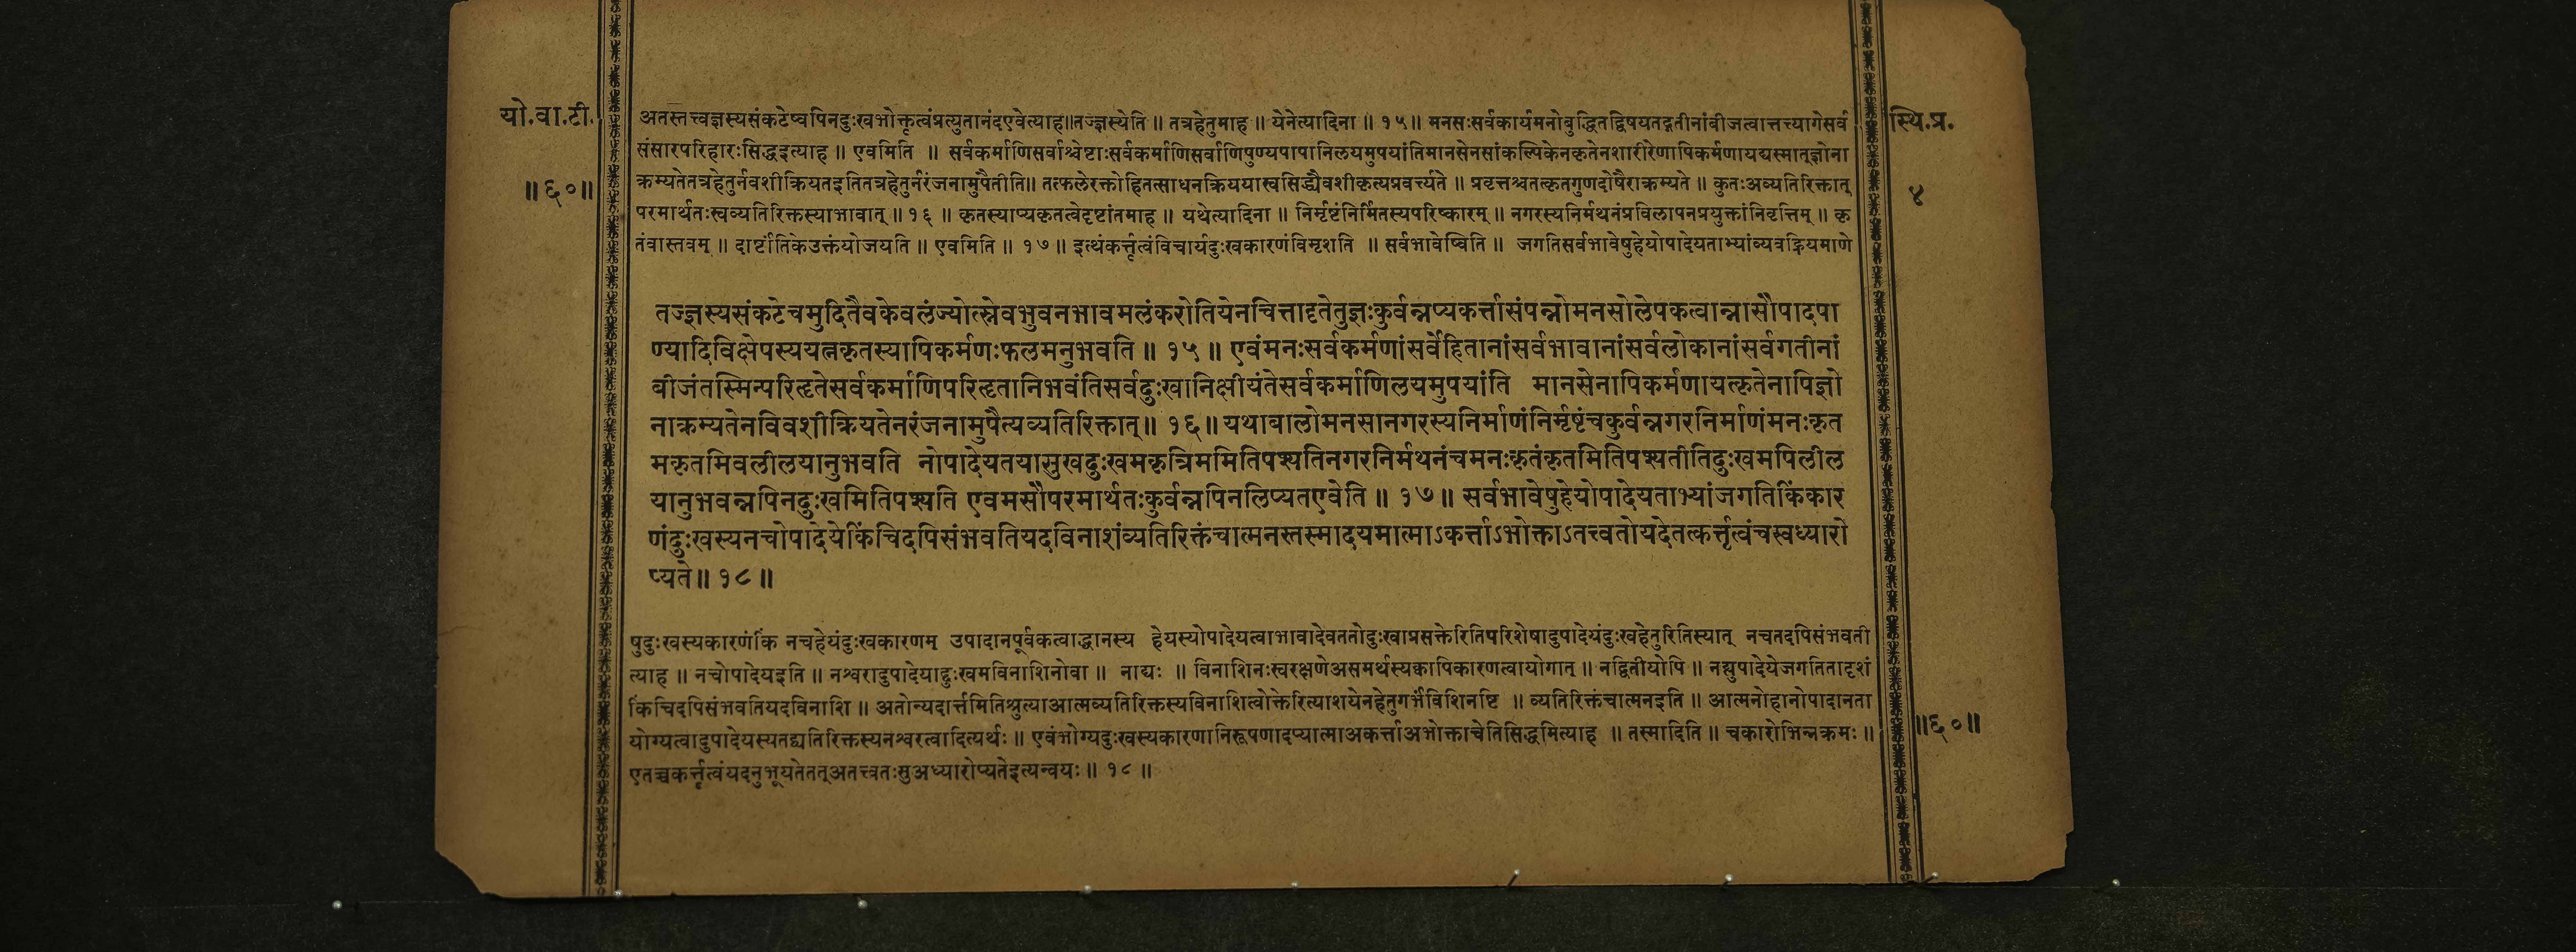 यो.वा.टी.
॥६०॥
अतस्तत्त्वज्ञस्यसंकटेष्वपिनदुःखभोक्तृत्वंप्रत्युतानंदएवेत्याह॥तज्ज्ञस्येति ॥ तत्रहेतुमाह ॥ येनेत्यादिना ॥ १५॥ मनसःसर्वकार्यमनोबुद्धितद्विषयतद्गतीनांबीजत्वात्तत्त्यागेसर्व
संसारपरिहारःसिद्धइत्याह ॥ एवमिति ॥ सर्वकर्माणिसर्वाश्चेष्टाःसर्वकर्माणिसर्वाणिपुण्यपापानिलयमुपयांतिमानसेनसांकल्पिकेनकृतेनशारीरेणापिकर्मणायद्यस्मात्ज्ञोना
क्रम्यतेतत्रहेतुर्नवशीक्रियतइतितत्रहेतुर्नरंजनामुपैतीति॥ तत्फलेरक्तोहितत्साधनक्रिययास्वसिद्ध्यैवशीकृत्यप्रवर्त्त्यते ॥ प्रवृत्तश्चतत्कृतगुणदोषैराक्रम्यते ॥ कुतःअव्यतिरिक्तात्
परमार्थतःस्वव्यतिरिक्तस्याभावात् ॥ १६ ॥ कृतस्याप्यकृतत्वेदृष्टांतमाह ॥ यथेत्यादिना ॥ निर्मृष्टंनिर्मितस्यपरिष्कारम् ॥ नगरस्यनिर्मथनंप्रविलापनप्रयुक्तांनिवृत्तिम् ॥ कृ
तंवास्तवम् ॥ दार्ष्टांतिकेउक्तंयोजयति ॥ एवमिति ॥ १७ ॥ इत्थंकर्त्तृत्वंविचार्यदुःखकारणंविमृशति ॥ सर्वभावेष्विति ॥ जगतिसर्वभावेषुहेयोपादेयताभ्यांव्यवह्रियमाणे
तज्ज्ञस्यसंकटेचमुदितैवकेवलंज्योत्स्नेवभुवनभावमलंकरोतियेनचित्तादृतेतुज्ञःकुर्वन्नप्यकर्त्तासंपन्नोमनसोलेपकत्वान्नासौपादपा
ण्यादिविक्षेपस्ययत्नकृतस्यापिकर्मणःफलमनुभवति ॥ १५ ॥ एवंमनःसर्वकर्मणांसर्वेहितानांसर्वभावानांसर्वलोकानांसर्वगतीनां
बीजंतस्मिन्परिहृतेसर्वकर्माणिपरिहृतानिभवंतिसर्वदुःखानिक्षीयंतेसर्वकर्माणिलयमुपयांति मानसेनापिकर्मणायत्कृतेनापिज्ञो
नाक्रम्यतेनविवशीक्रियतेनरंजनामुपैत्यव्यतिरिक्तात्॥ १६॥ यथाबालोमनसानगरस्यनिर्माणंनिर्मृष्टंचकुर्वन्नगरनिर्माणंमनःकृत
मकृतमिवलीलयानुभवति नोपादेयतयासुखदुःखमकृत्रिममितिपश्यतिनगरनिर्मथनंचमनःकृतंकृतमितिपश्यतीतिदुःखमपिलील
यानुभवन्नपिनदुःखमितिपश्यति एवमसौपरमार्थतःकुर्वन्नपिनलिप्यतएवेति ॥ १७ ॥ सर्वभावेषुहेयोपादेयताभ्यांजगतिकिंकार
णंदुःखस्यनचोपादेयेकिंचिदपिसंभवतियदविनाशंव्यतिरिक्तंचात्मनस्तस्मादयमात्माऽकर्त्ताऽभोक्ताऽतत्त्वतोयदेतत्कर्त्तृत्वंचस्वध्यारो
प्यते॥ १८ ॥
षुदुःखस्यकारणंकिं नचहेयंदुःखकारणम् उपादानपूर्वकत्वाद्धानस्य हेयस्योपादेयत्वाभावादेवततोदुःखाप्रसक्तेरितिपरिशेषादुपादेयंदुःखहेतुरितिस्यात् नचतदपिसंभवती
त्याह ॥ नचोपादेयइति ॥ नश्वरादुपादेयाद्दुःखमविनाशिनोवा ॥ नाद्यः ॥ विनाशिनःस्वरक्षणेअसमर्थस्यक्वापिकारणत्वायोगात् ॥ नद्वितीयोपि ॥ नह्युपादेयेजगतितादृशं
किंचिदपिसंभवतियदविनाशि ॥ अतोन्यदार्त्तमितिश्रुत्याआत्मव्यतिरिक्तस्यविनाशित्वोक्तेरित्याशयेनहेतुगर्भंविशिनष्टि ॥ व्यतिरिक्तंचात्मनइति ॥ आत्मनोहानोपादानता
योग्यत्वादुपादेयस्यतद्व्यतिरिक्तस्यनश्वरत्वादित्यर्थः ॥ एवंभोग्यदुःखस्यकारणानिरूपणादप्यात्माअकर्त्ताअभोक्ताचेतिसिद्धमित्याह ॥ तस्मादिति ॥ चकारोभिन्नक्रमः ॥
एतच्चकर्त्तृत्वंयदनुभूयतेतत्अतत्त्वतःसुअध्यारोप्यतेइत्यन्वयः ॥ १८ ॥
स्थि.प्र.
४
॥६०॥